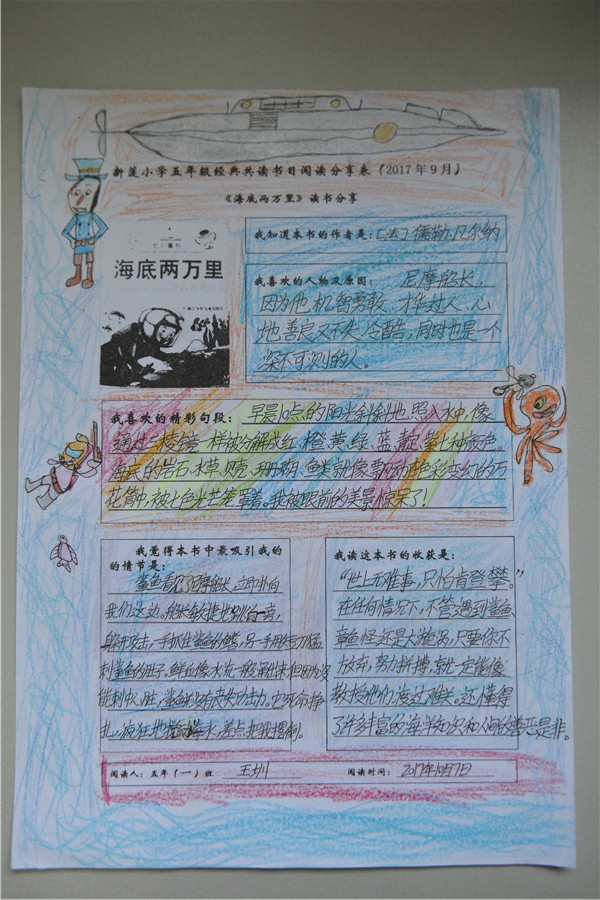 新莲小学五年级经典共读书目阅读分享表(2017年9月)
《海底两万里》读书分享
海底两万里
我知道本书的作者是:[法]儒勒·凡尔纳
我喜欢的人物及原因: 尼摩船长,
因为他机智勇敢,才华过人,心
地善良又不失冷酷,同时也是一个
深不可测的人。
我喜欢的精彩句段: 早晨10点的阳光斜斜地照入水中,像
通过三棱镜一样被分解成红、橙、黄、绿、蓝、靛、紫七种颜色。
海底的岩石、水草、贝壳、珊瑚、鱼类就像飘动在色彩变幻的万
花筒中,被七色光芒笼罩着。我被眼前的美景惊呆了!
我觉得本书中最吸引我的
的情节是:
鲨鱼看见了尼摩船长,立即扑向
我们这边。船长敏捷地别向一旁,
躲开攻击,一手抓住鲨鱼的鳍,另一手用短刀猛
刺鲨鱼的肚子。鲜血像水流一般涌出来,但因为没
能刺中心脏,鲨鱼并没有丧失攻击力。它死命挣
扎,疯狂地搅动海水,差点把我撂倒。
我读这本书的收获是:
“世上无难事,只怕肯登攀。”
在任何情况下,不管遇到鲨鱼、
章鱼怪还是大漩涡,只要你不
放弃,努力拼搏,就一定能像
教授他们一样渡过难关。还懂得
了许多丰富的海洋知识和人间的善恶是非。
阅读人:五年(一)班 王圳
阅读时间: 2017年10月7日